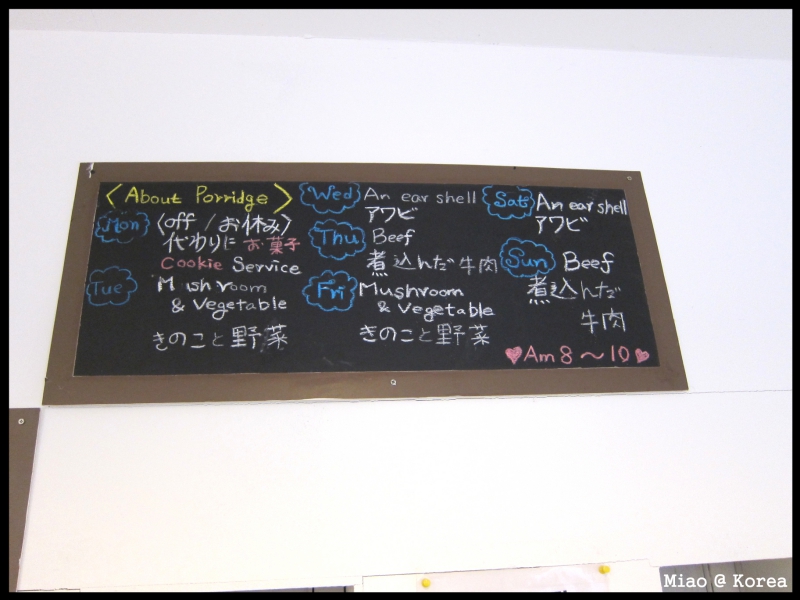 〈About Porridge〉
Mon 〈off / お休み〉
代わりに お菓子
Cookie Service
Tue Mushroom
& Vegetable
きのこと野菜
Wed An ear shell
アワビ
Thu Beef
煮込んだ牛肉
Fri Mushroom
& Vegetable
きのこと野菜
Sat An ear shell
アワビ
Sun Beef
煮込んだ
牛肉
♥Am 8～10♥
Miao @ Korea